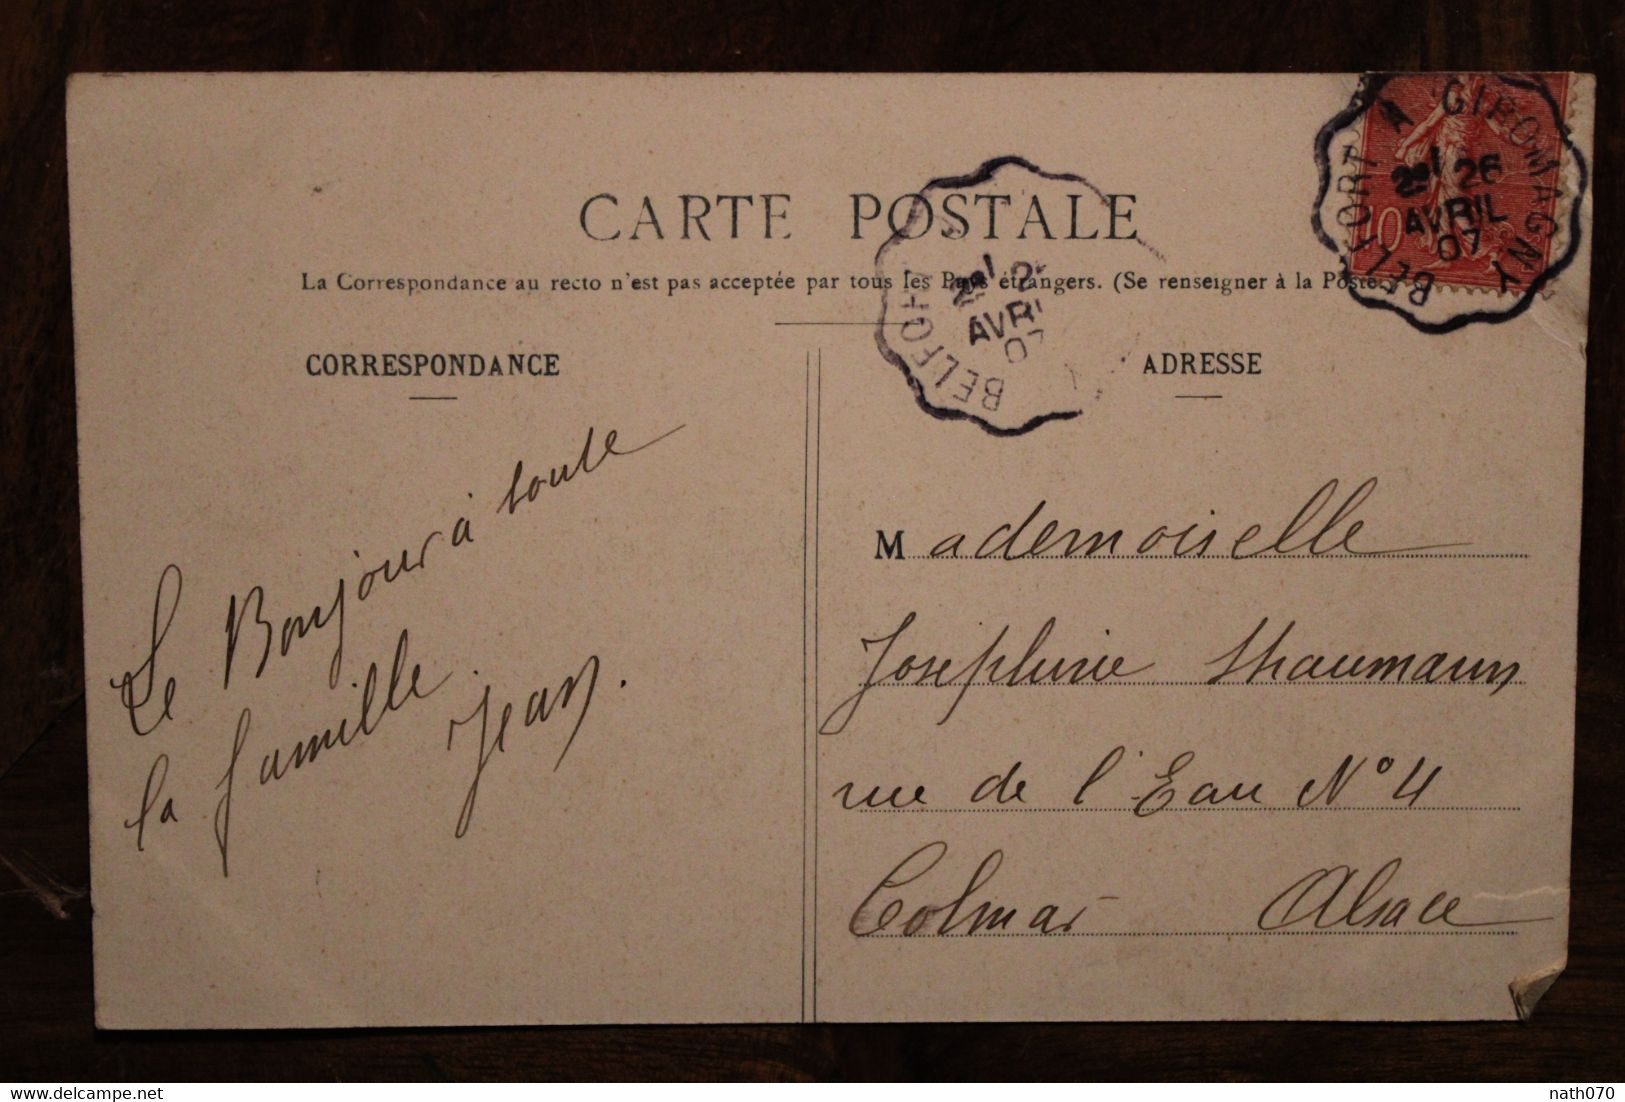 CARTE POSTALE
La Correspondance au recto n'est pas acceptée par tous les Pays étrangers. (Se renseigner à la Poste.)
CORRESPONDANCE
ADRESSE
BELFORT A GIROMAGNY
2e/ 26
AVRIL
07
10
BELFORT
AVRI
07
Le Bonjour à toute
la famille
Jean.
Mademoiselle
Josephine Thaumann
rue de l'Eau N° 4
Colmar Alsace
delcampe.net
nath070